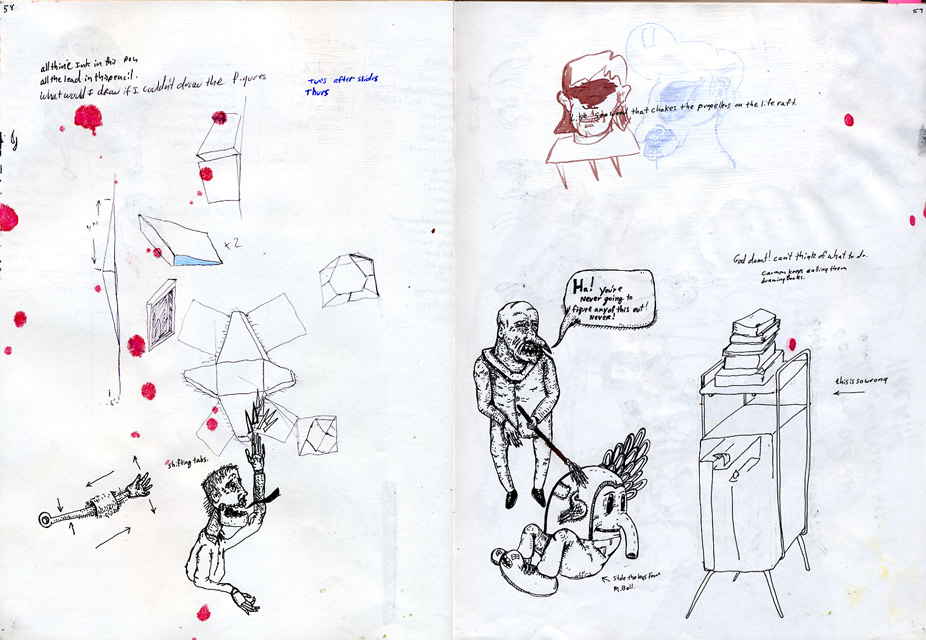 58
all the ink in this pen
all the lead in this pencil.
What would I draw if I couldn't draw the figures
Tues after slides
Thurs
x2
shifting tabs.
57
Like Seaweed that chokes the propellers on the life raft.
God damnt! can't think of what to do.
Carmen keeps calling them
drawing books.
Ha! you're
Never going to
figure any of this out!
Never!
this is so wrong
Stole the legs from
M. Bell.